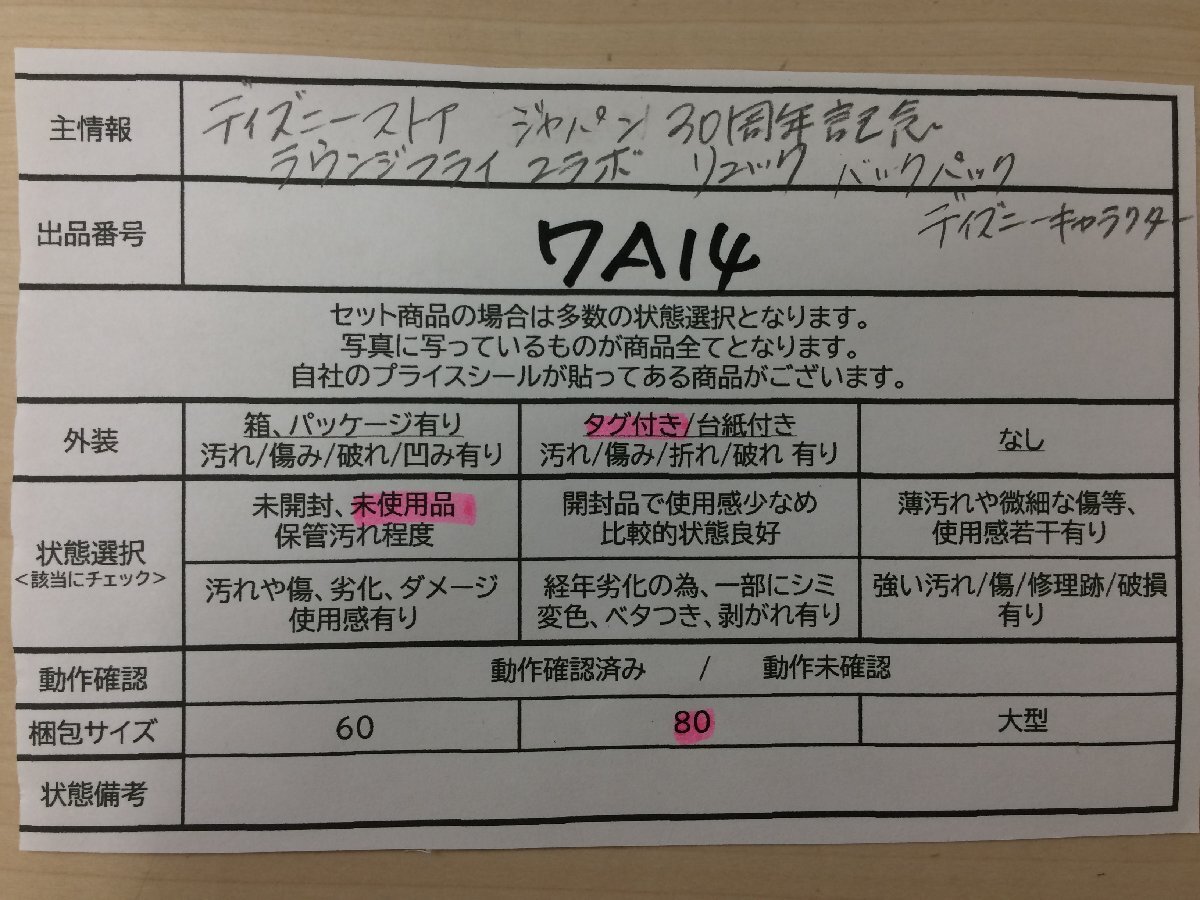 主情報
ディズニーストア ジャパン 30周年記念
ラウンジフライ コラボ リュック バックパック
ディズニーキャラクター
出品番号
7A14
セット商品の場合は多数の状態選択となります。
写真に写っているものが商品全てとなります。
自社のプライスシールが貼ってある商品がございます。
外装
箱、パッケージ有り
汚れ/傷み/破れ/凹み有り
タグ付き/台紙付き
汚れ/傷み/折れ/破れ 有り
なし
状態選択
<該当にチェック>
未開封、未使用品
保管汚れ程度
開封品で使用感少なめ
比較的状態良好
薄汚れや微細な傷等、
使用感若干有り
汚れや傷、劣化、ダメージ
使用感有り
経年劣化の為、一部にシミ
変色、ベタつき、剥がれ有り
強い汚れ/傷/修理跡/破損
有り
動作確認
動作確認済み / 動作未確認
梱包サイズ
60
80
大型
状態備考